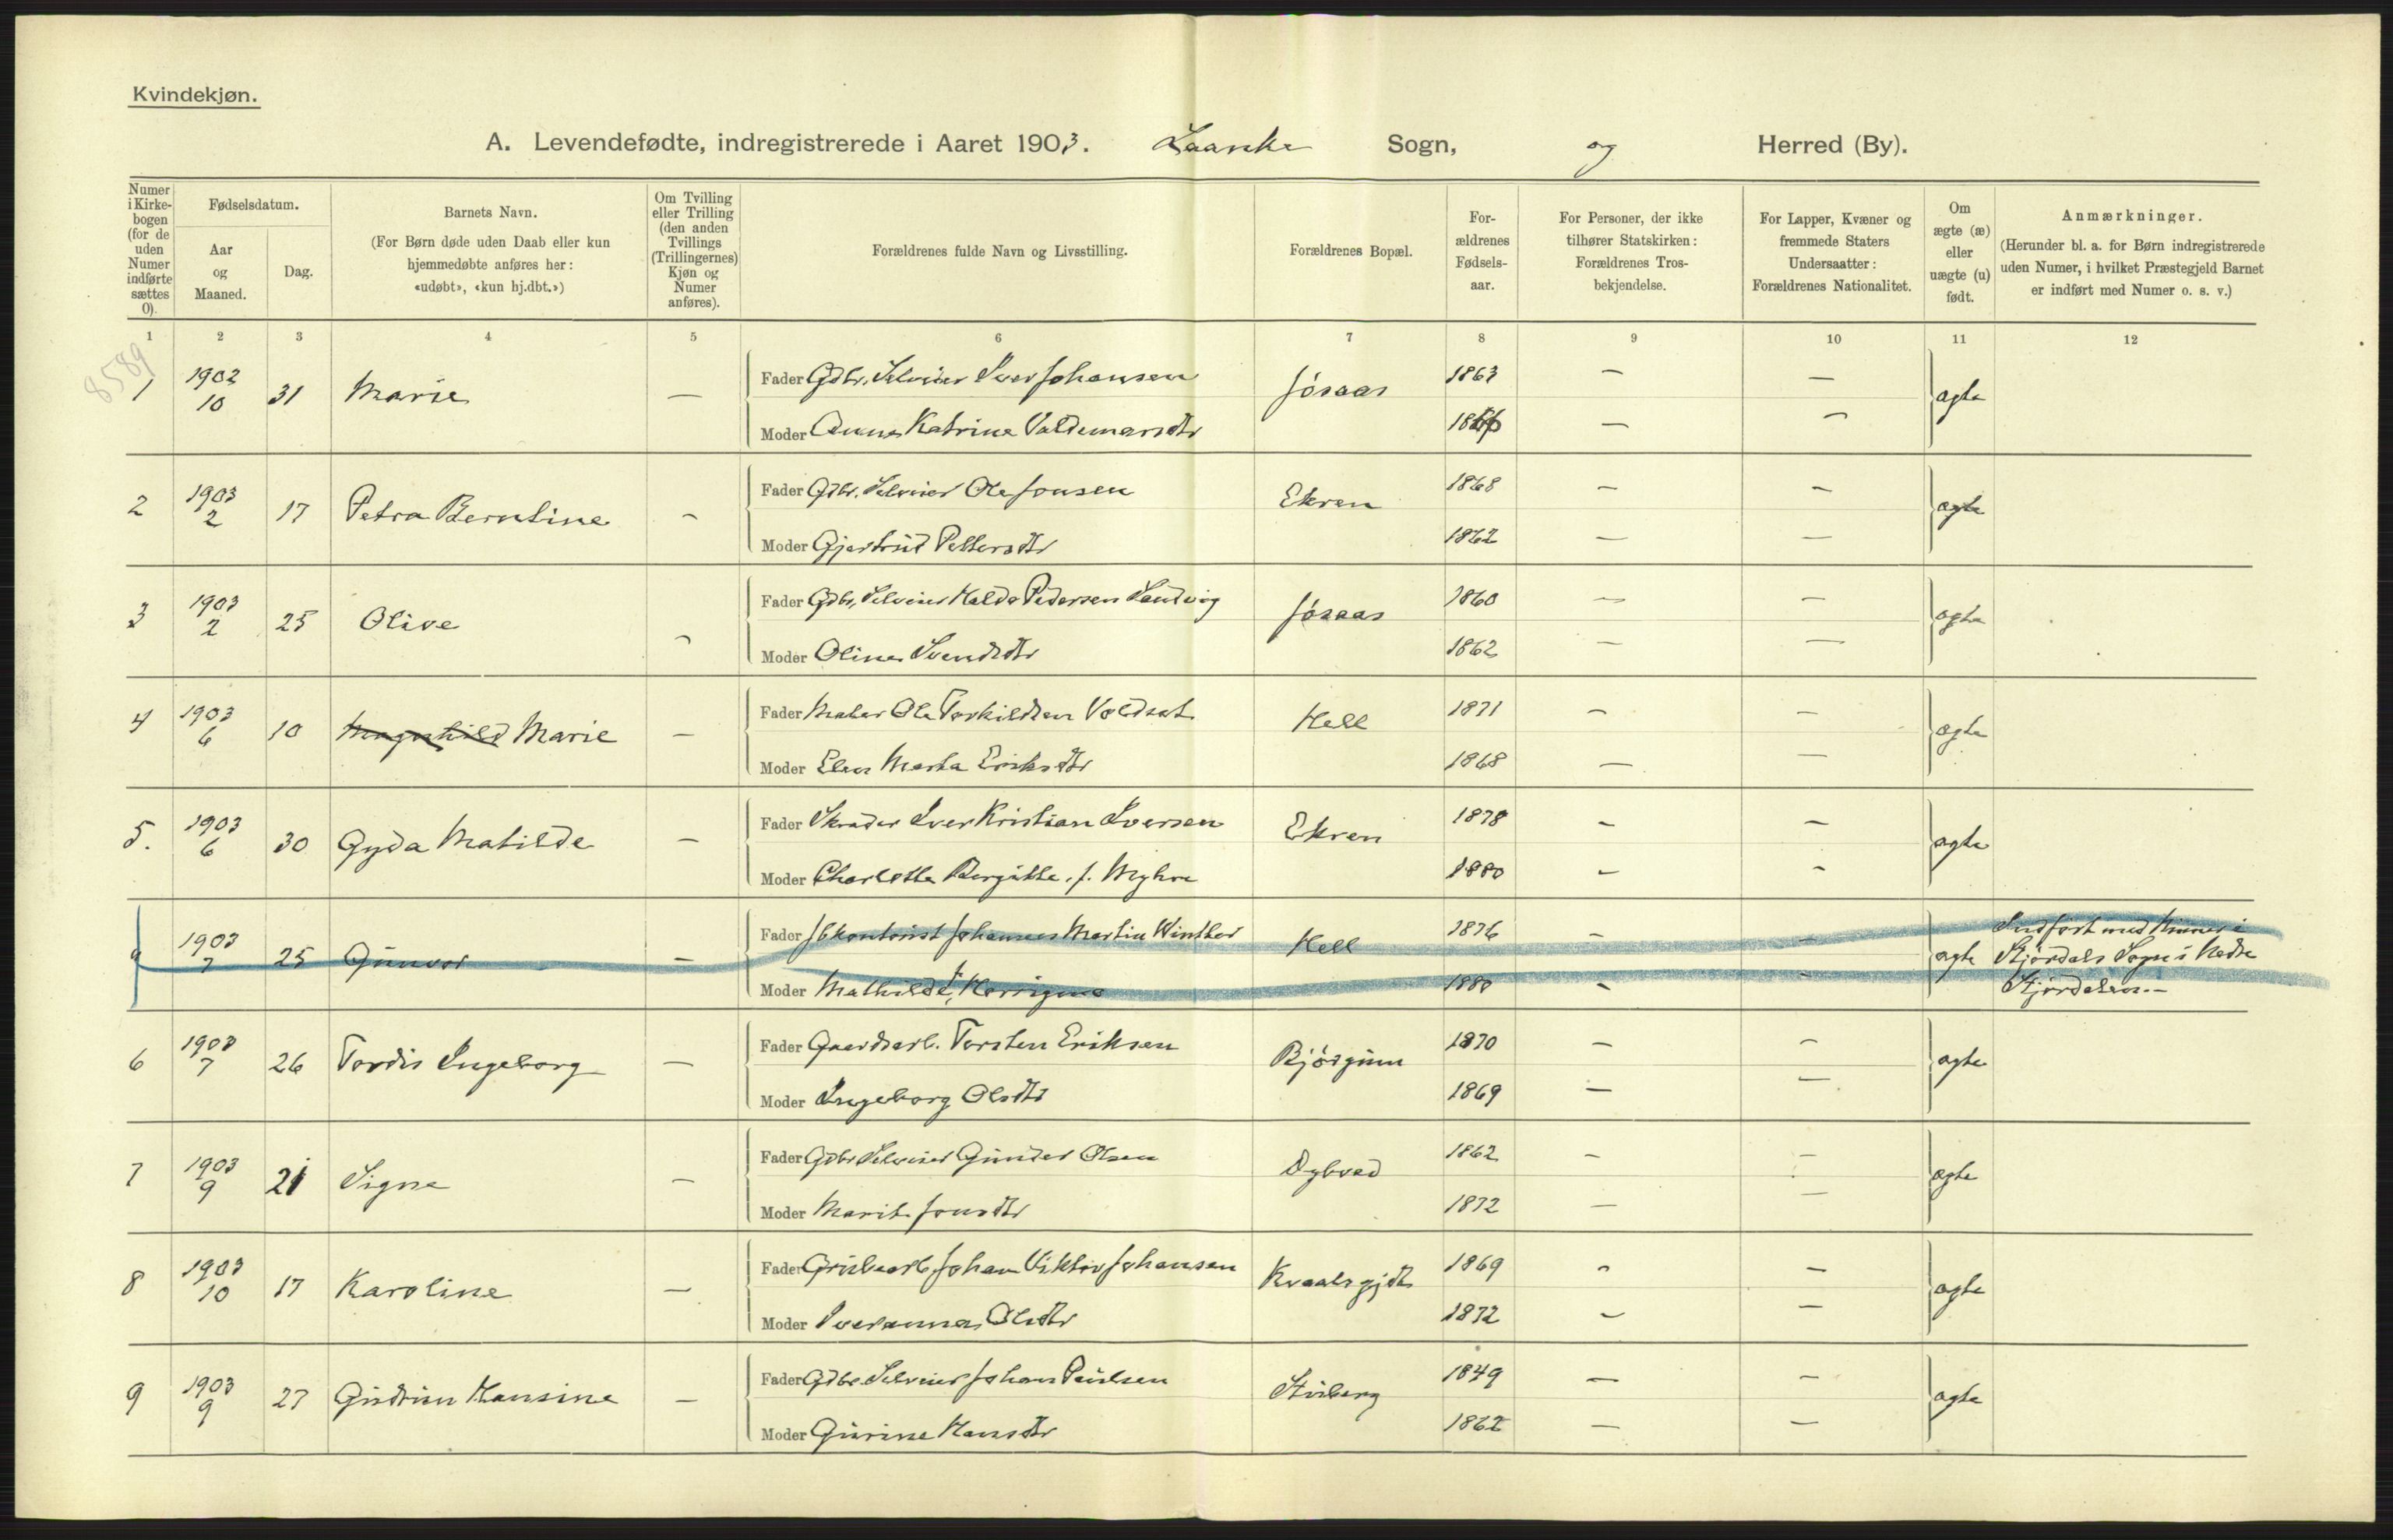 Kvindekjøn.
A. Levendefødte, indregistrerede i Aaret 1903. Laanke Sogn, og Herred (By).
Numer i Kirke-bogen (for de uden Numer indførte sættes 0).
Fødselsdatum.
Aar og Maaned.
Dag.
Barnets Navn.
(For Børn døde uden Daab eller kun hjemmedøbte anføres her: «udøbt», «kun hj.dbt.»)
Om Tvilling eller Trilling (den anden Tvillings (Trillingernes) Kjøn og Numer anføres).
Forældrenes fulde Navn og Livsstilling.
Forældrenes Bopæl.
For-ældrenes Fødsels-aar.
For Personer, der ikke tilhører Statskirken: Forældrenes Tros-bekjendelse.
For Lapper, Kvæner og fremmede Staters Undersaatter: Forældrenes Nationalitet.
Om ægte (æ) eller uægte (u) født.
Anmærkninger.
(Herunder bl. a. for Børn indregistrerede uden Numer, i hvilket Præstegjeld Barnet er indført med Numer o. s. v.)
1 2 3 4 5 6 7 8 9 10 11 12
8589
1 1902 10 31 Marie — Fader Gdbr. Selveier Iver Johansen Jösaas 1863 — — ægte
Moder Anna Katrine Valdemarsdtr — —
2 1903 2 17 Petra Berntine — Fader Gdbr. Selveier Ole Jonsen Ekren 1868 — — ægte
Moder Gjertrud Pettersdtr 1862 — —
3 1903 2 25 Olive — Fader Gdbr. Selveier Haldo Pedersen Sandvig Jösaas 1860 — — ægte
Moder Oline Svendsdtr 1862 — —
4 1903 6 10 Magnhild Marie — Fader Maler Ole Torkildsen Voldset Hell 1871 — — ægte
Moder Elen Marta Eriksdtr 1868 — —
5. 1903 6 30 Gyda Matilde — Fader Skræder Iver Kristian Iversen Ekren 1878 — — ægte
Moder Charlotte Bergitte f. Myhre 1880 — —
1903 7 25 Gunvor — Fader Johannes Martin Winther Hell 1876 — — ægte Indført med Numer i Stjørdals Sogn i Nedre Stjørdalen.—
Moder Mathilde f. 1880 — —
6 1903 7 26 Tordis Ingeborg — Fader Gaardsarb. Torsten Eriksen 1870 — — ægte
Moder Ingeborg Olsdtr 1869 — —
7 1903 9 21 Signe — Fader Gdbr. Selveier Gunder Olsen Dybvad 1862 — — ægte
Moder Marit Jonsdtr 1872 — —
8 1903 10 17 Karoline — Fader Grubearb. Johan Viktor Johansen Kvaalsgjdt 1869 — — ægte
Moder Iveranna Olsdtr 1872 — —
9 1903 9 27 Gudrun Hansine — Fader Gdbr. Selveier Johan Paulsen Stuberg 1849 — — ægte
Moder Gurine Hansdtr 1862 — —